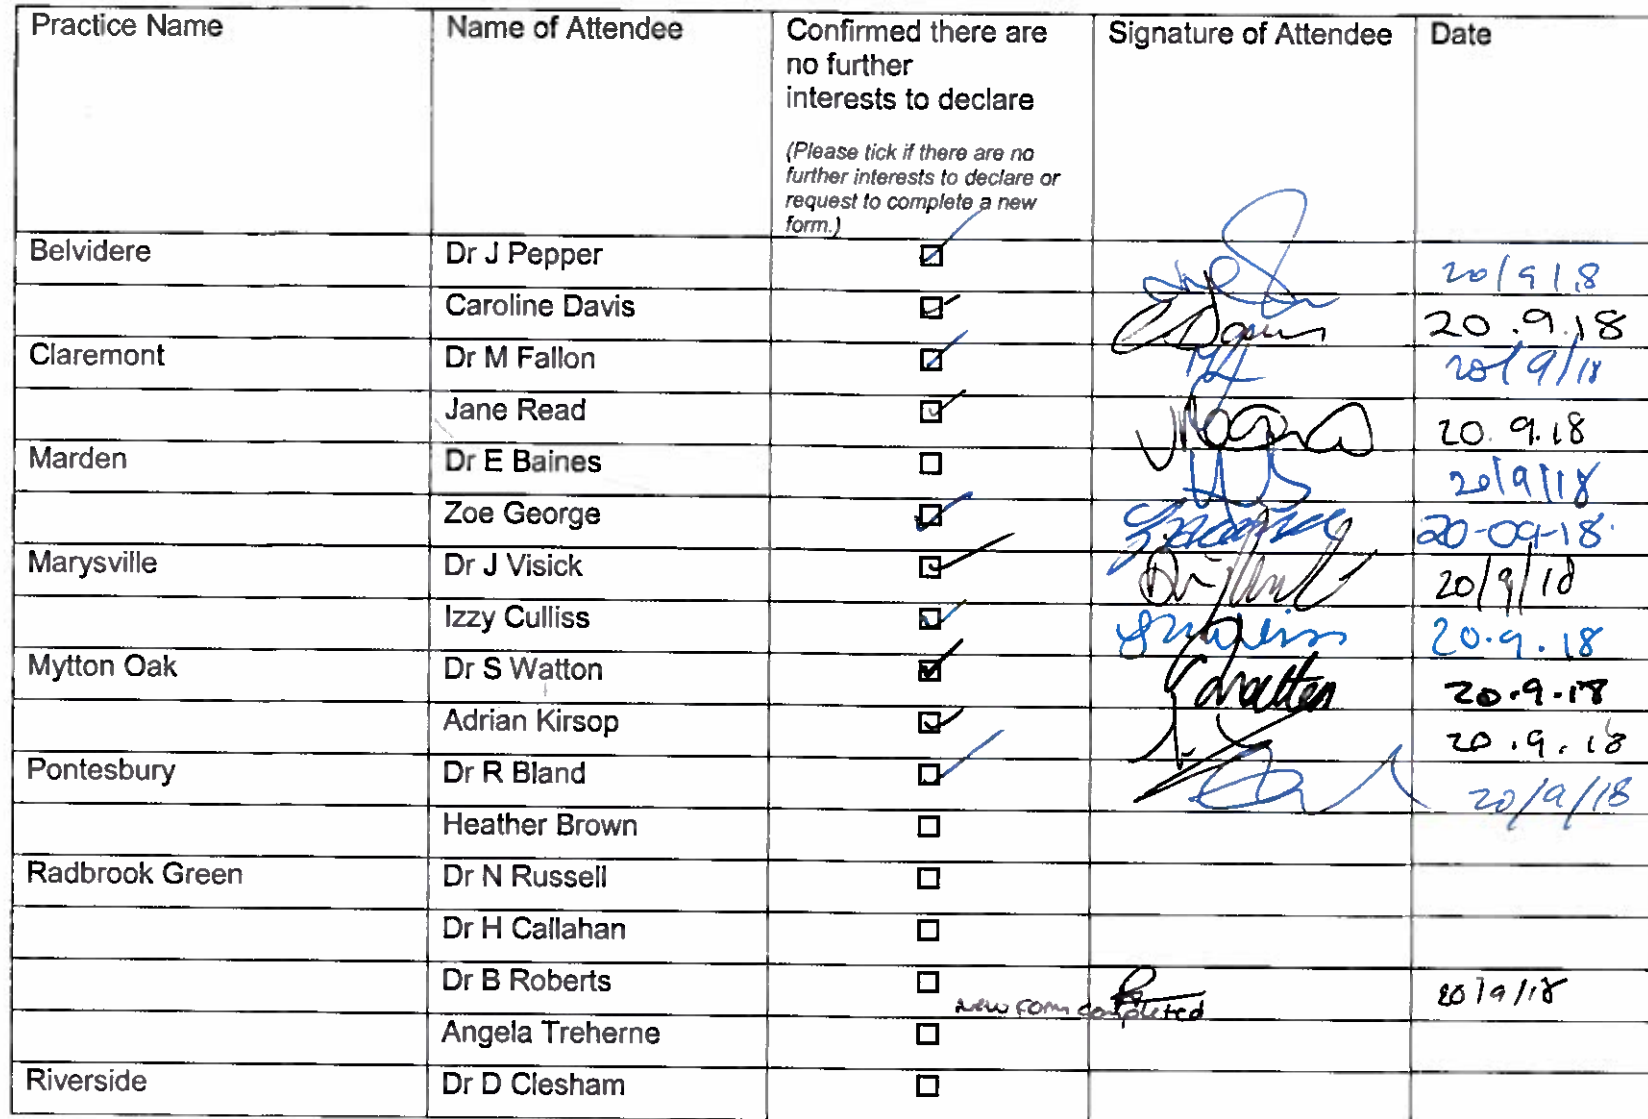 Practice Name Name of Attendee Confirmed there are no further interests to declare Signature of Attendee Date
(Please tick if there are no further interests to declare or request to complete a new form.)
Belvidere Dr J Pepper 20/9/18
Caroline Davis C Davis 20.9.18
Claremont Dr M Fallon 20/9/18
Jane Read 20.9.18
Marden Dr E Baines 20/9/18
Zoe George 20-09-18
Marysville Dr J Visick 20/9/18
Izzy Culliss 20.9.18
Mytton Oak Dr S Watton 20.9.18
Adrian Kirsop 20.9.18
Pontesbury Dr R Bland 20/9/18
Heather Brown
Radbrook Green Dr N Russell
Dr H Callahan
Dr B Roberts 20/9/18
New form completed
Angela Treherne
Riverside Dr D Clesham